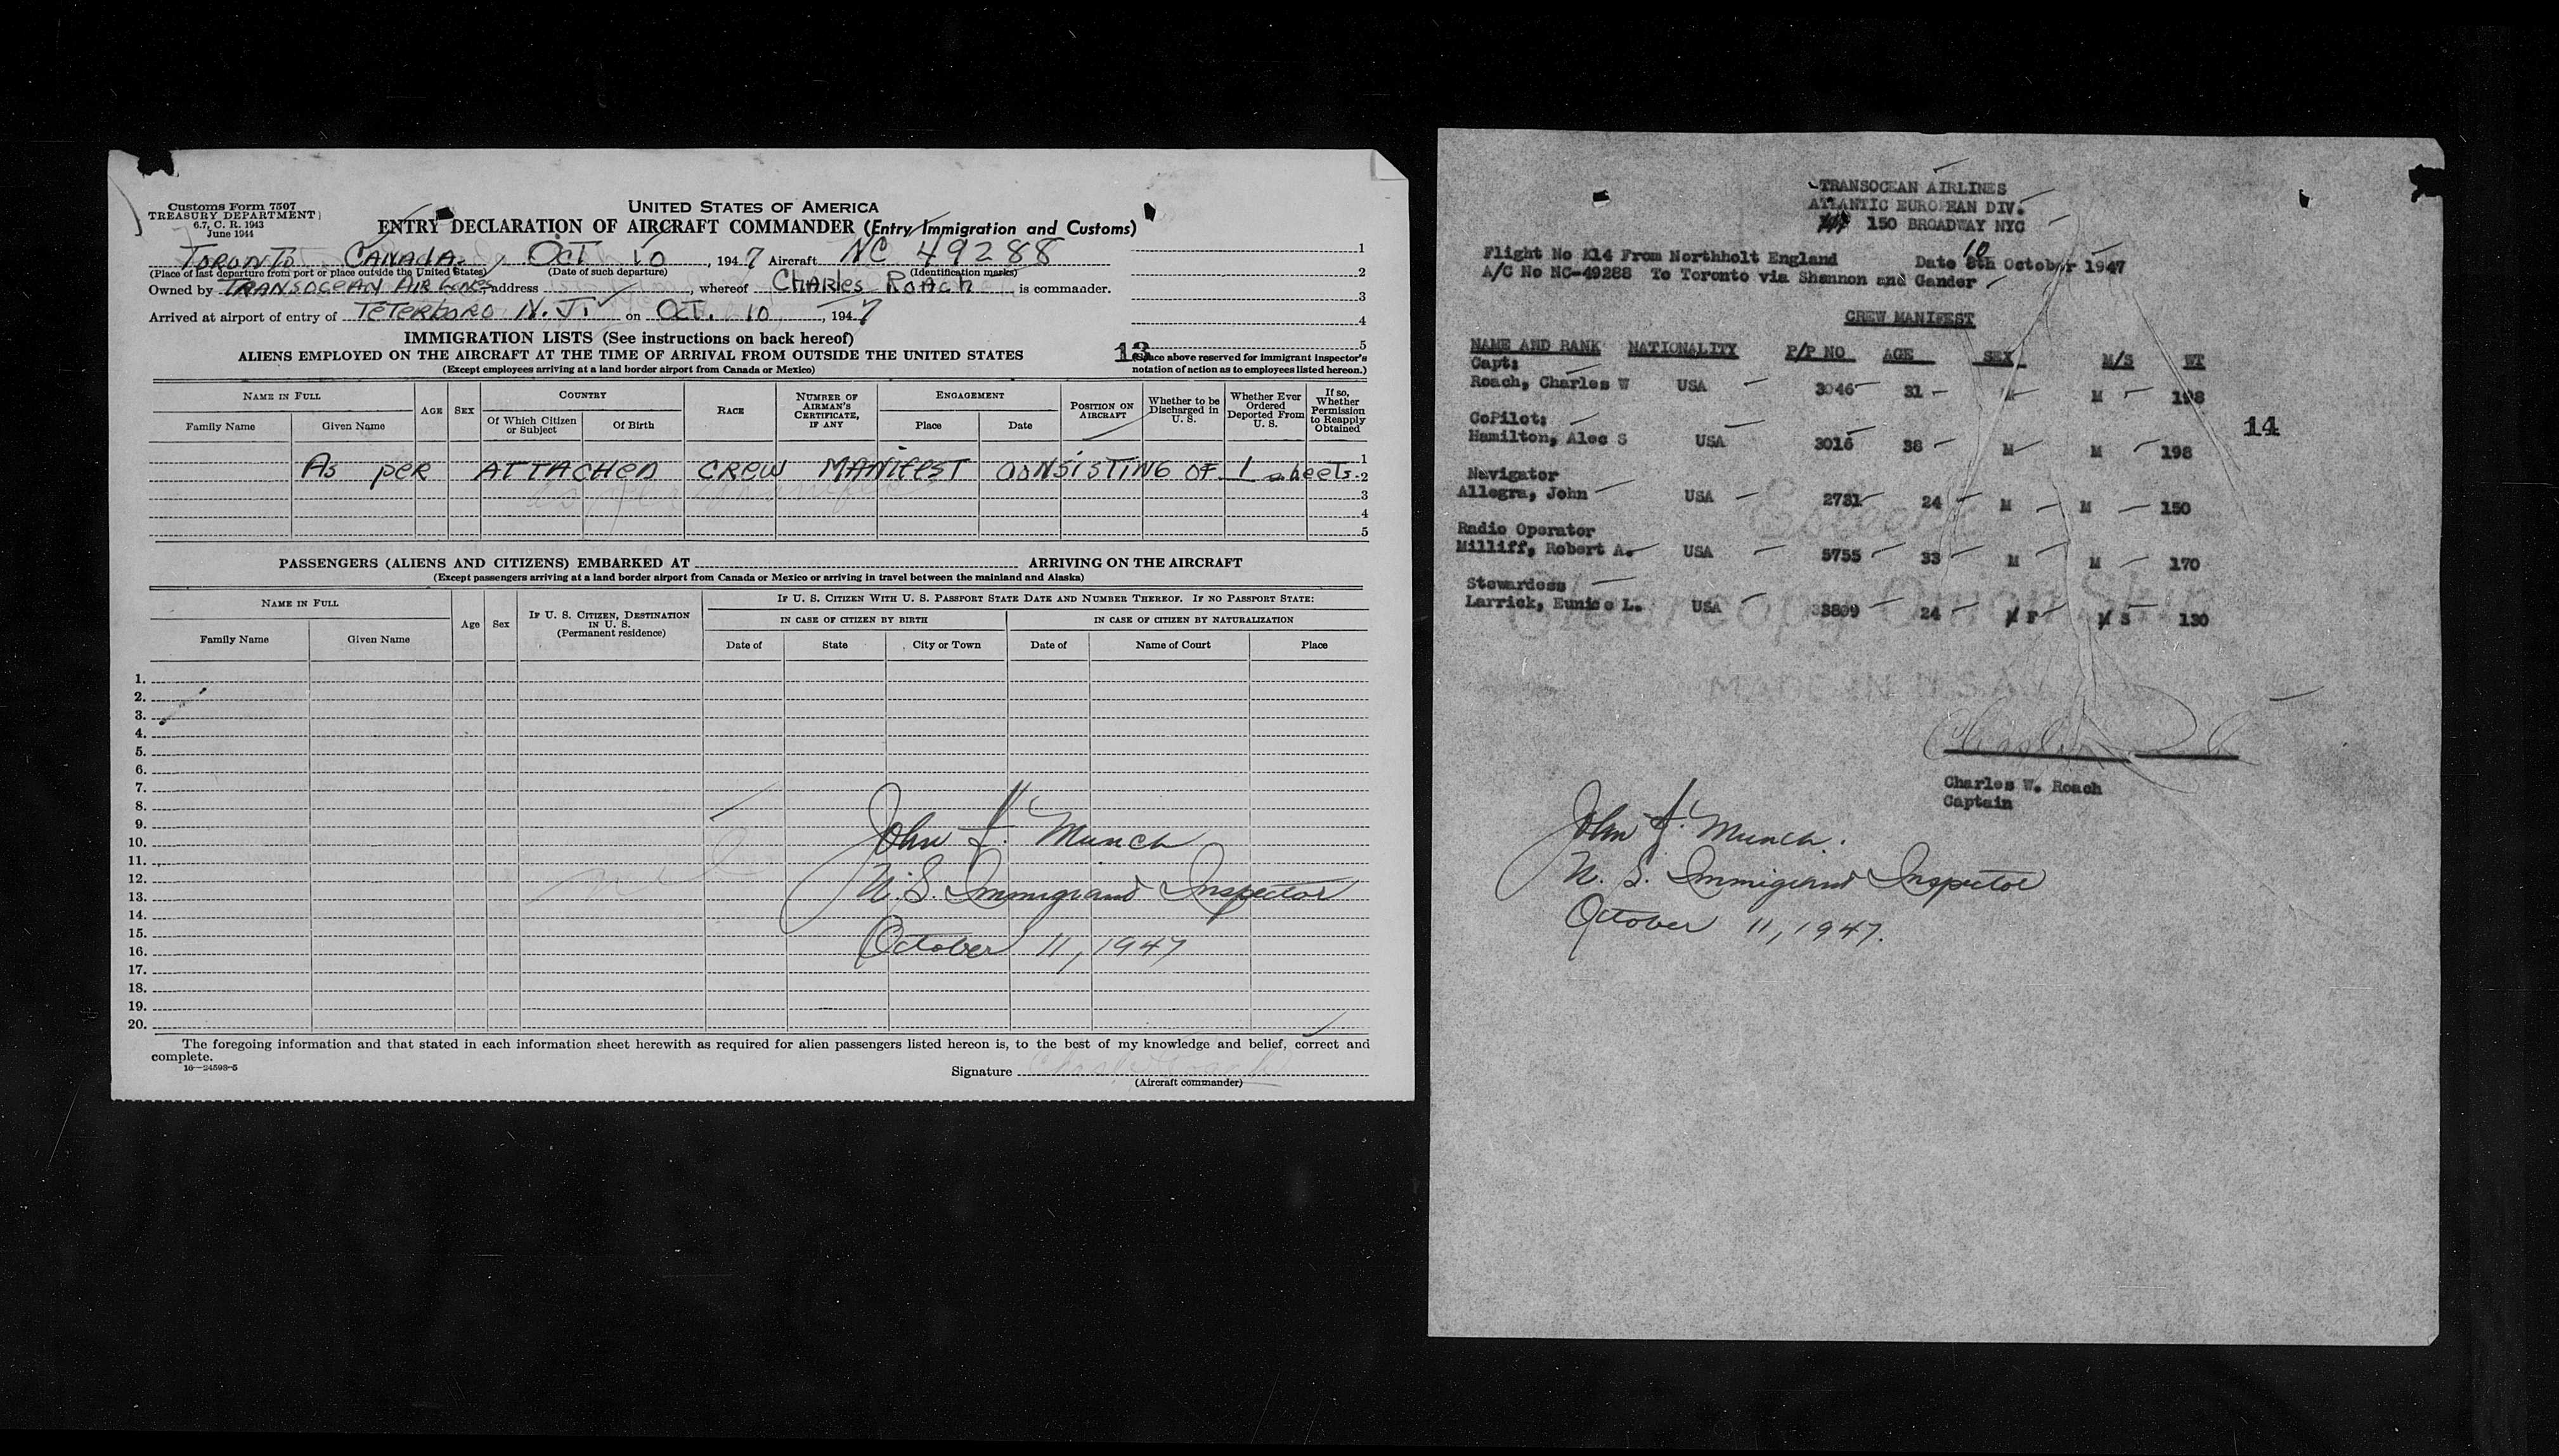 Customs Form 7507
TREASURY DEPARTMENT
6.7, C. R. 1943
June 1944
UNITED STATES OF AMERICA
ENTRY DECLARATION OF AIRCRAFT COMMANDER (Entry Immigration and Customs)
TORONTO CANADA. OCT 10, 1947 Aircraft NC 49288
(Place of last departure from port or place outside the United States) (Date of such departure) (Identification marks)
Owned by TRANSOCEAN AIR LINES, address , whereof CHARLES ROACH is commander.
Arrived at airport of entry of TETERBORO N.J. on OCT. 10, 1947
1
2
3
4
5
IMMIGRATION LISTS (See instructions on back hereof)
ALIENS EMPLOYED ON THE AIRCRAFT AT THE TIME OF ARRIVAL FROM OUTSIDE THE UNITED STATES
(Except employees arriving at a land border airport from Canada or Mexico)
13
(Space above reserved for immigrant inspector's
notation of action as to employees listed hereon.)
NAME IN FULL
Family Name
Given Name
AGE
SEX
COUNTRY
Of Which Citizen or Subject
Of Birth
RACE
NUMBER OF AIRMAN'S CERTIFICATE, IF ANY
ENGAGEMENT
Place
Date
POSITION ON AIRCRAFT
Whether to be Discharged in U. S.
Whether Ever Ordered Deported From U. S.
If so, Whether Permission to Reapply Obtained
1
AS per ATTACHED CREW MANIFEST CONSISTING OF 1 sheets. 2
3
4
5
PASSENGERS (ALIENS AND CITIZENS) EMBARKED AT ARRIVING ON THE AIRCRAFT
(Except passengers arriving at a land border airport from Canada or Mexico or arriving in travel between the mainland and Alaska)
NAME IN FULL
Family Name
Given Name
Age
Sex
IF U. S. CITIZEN, DESTINATION IN U. S.
(Permanent residence)
IF U. S. CITIZEN WITH U. S. PASSPORT STATE DATE AND NUMBER THEREOF. IF NO PASSPORT STATE:
IN CASE OF CITIZEN BY BIRTH
IN CASE OF CITIZEN BY NATURALIZATION
Date of
State
City or Town
Date of
Name of Court
Place
1.
2.
3.
4.
5.
6.
7.
8.
9.
10.
11.
12.
13.
14.
15.
16.
17.
18.
19.
20.
nil
John F. Munch
U.S. Immigrant Inspector
October 11, 1947
The foregoing information and that stated in each information sheet herewith as required for alien passengers listed hereon is, to the best of my knowledge and belief, correct and
complete.
16—24598-5
Signature
(Aircraft commander)
TRANSOCEAN AIRLINES
ATLANTIC EUROPEAN DIV.
150 BROADWAY NYC
10
Flight No K14 From Northholt England Date 8th October 1947
A/C No NC-49288 To Toronto via Shannon and Gander
CREW MANIFEST
NAME AND RANK NATIONALITY P/P NO AGE SEX M/S WT
Capt:
Roach, Charles W USA 3046 31 M M 198
14
CoPilot:
Hamilton, Alec S USA 3016 38 M M 198
Navigator
Allegra, John USA 2731 24 M M 150
Radio Operator
Milliff, Robert A. USA 5755 33 M M 170
Stewardess
Larrick, Eunice L. USA 38809 24 F S 130
MADE IN U.S.A.
Charles W. Roach
Captain
John F. Munch.
U. S. Immigrant Inspector
October 11, 1947.